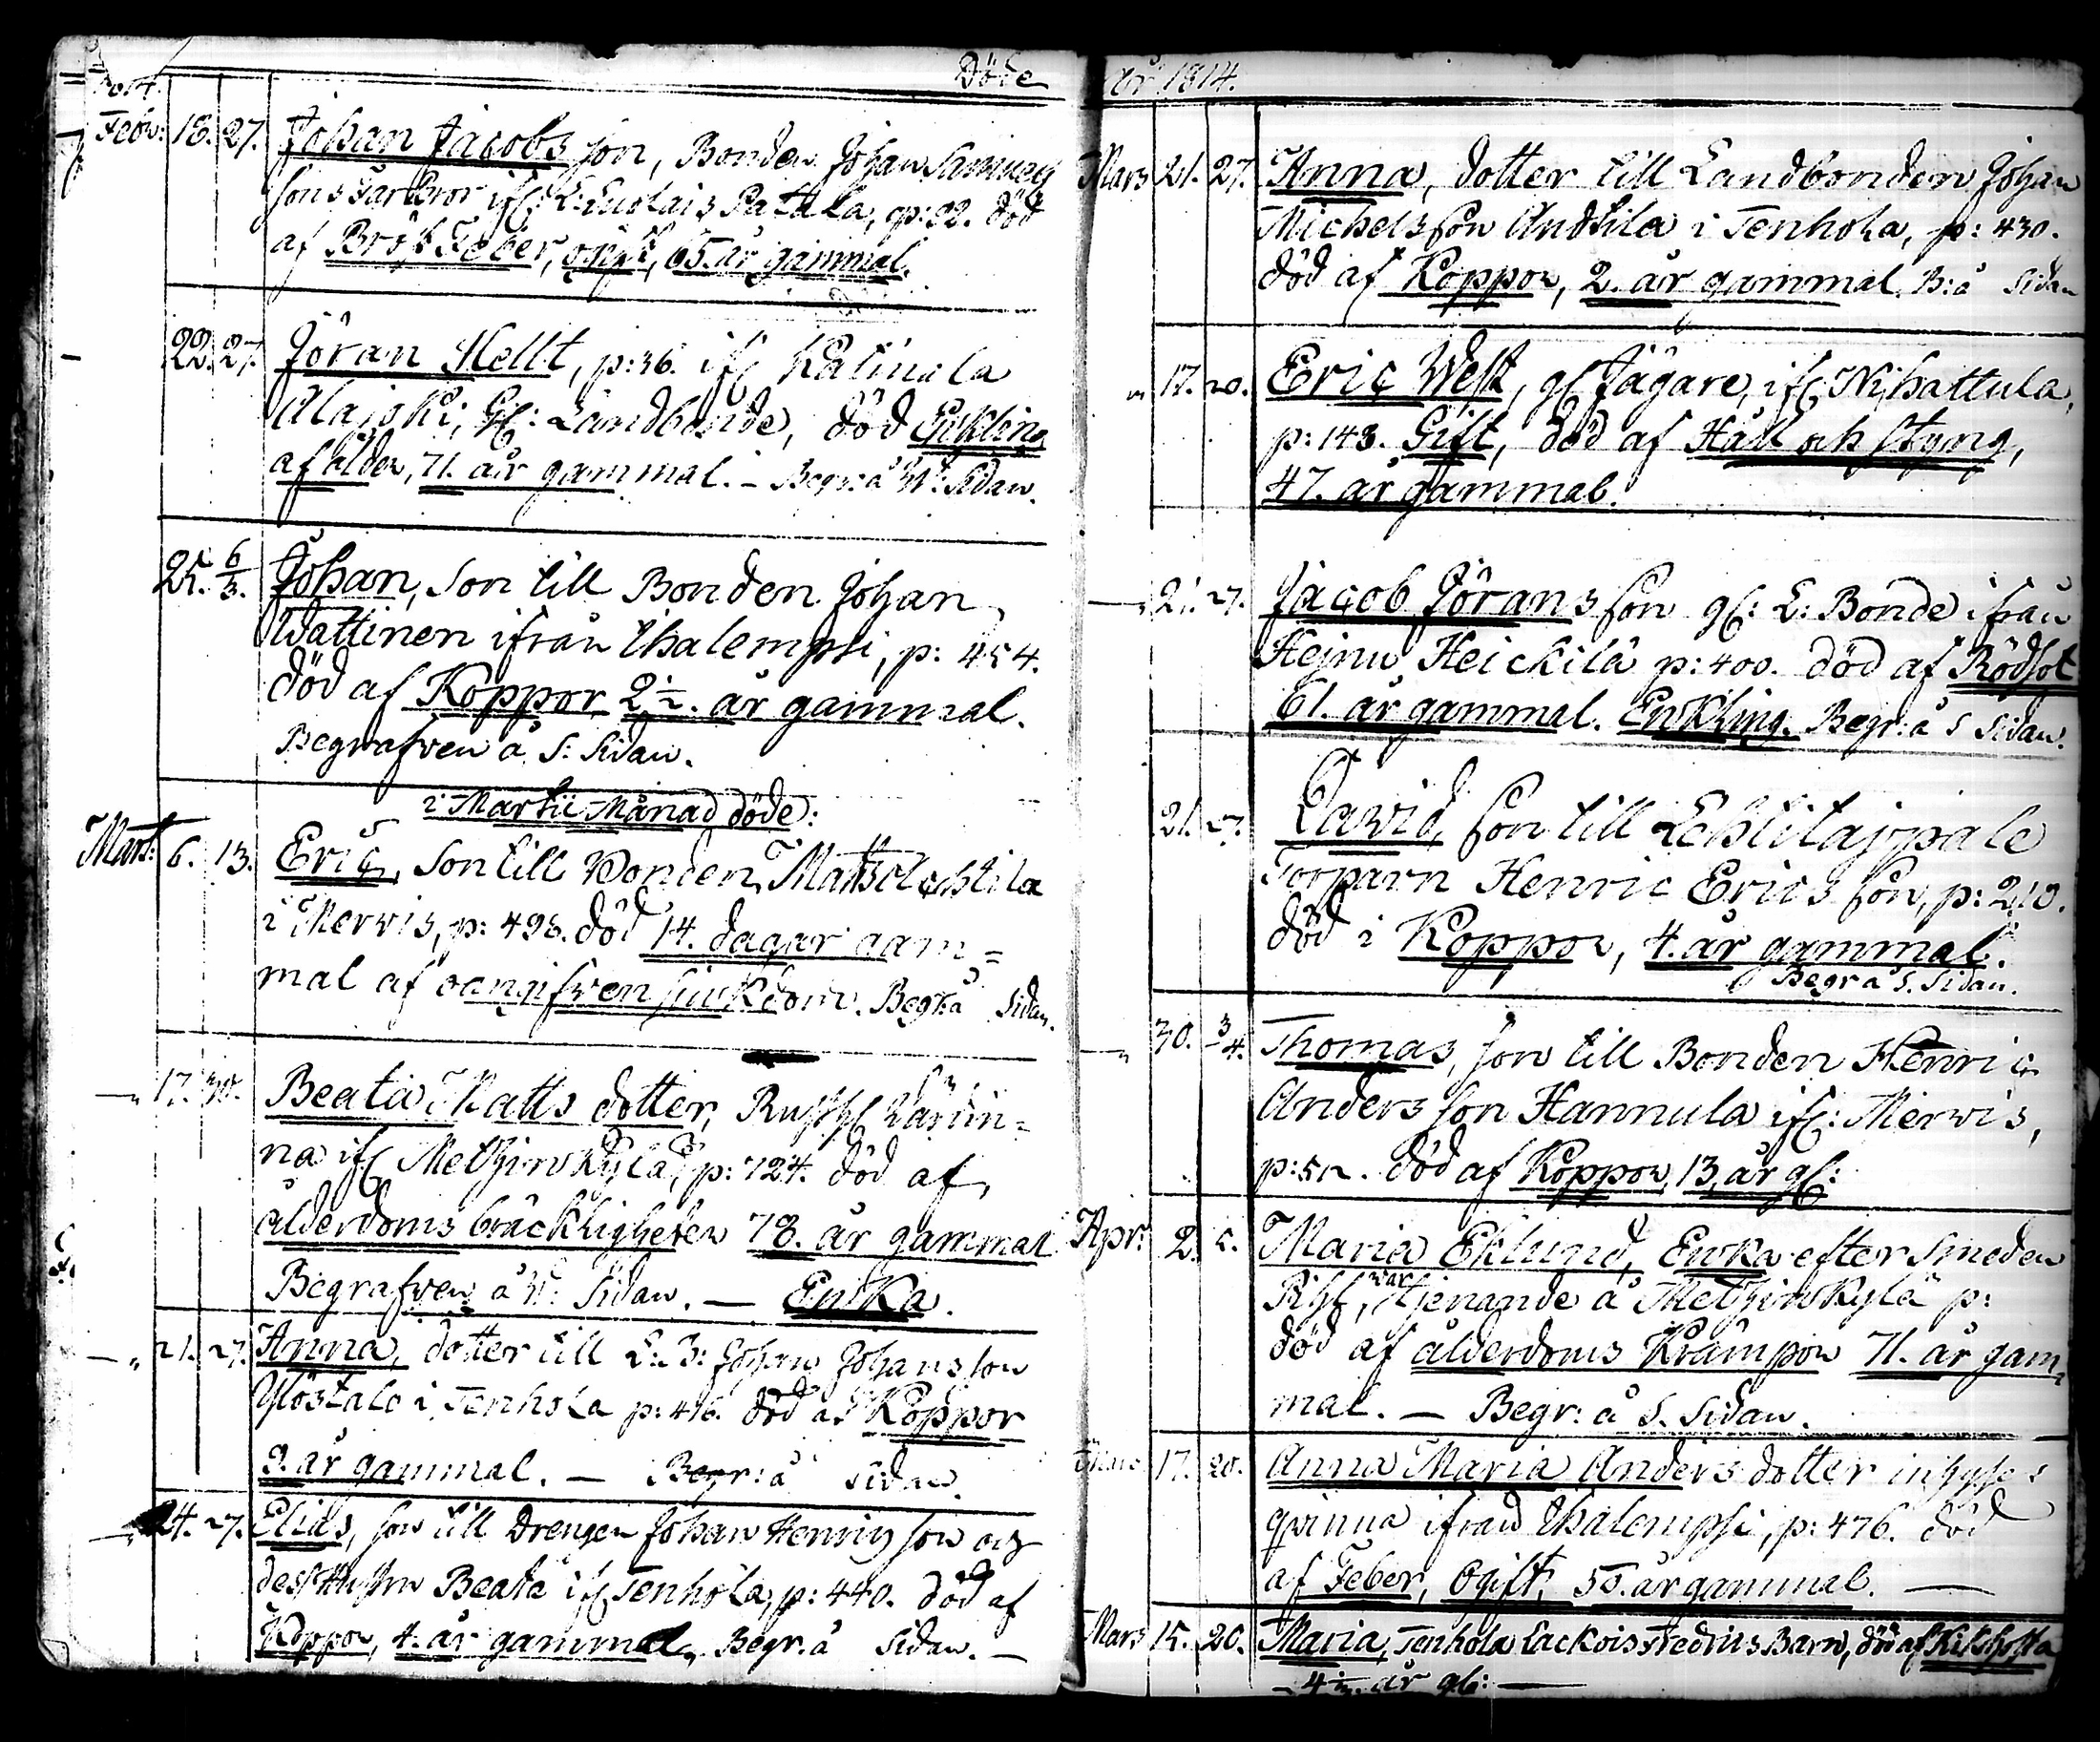 Döde
1814.
Febr: 18. 27. Johan Jacobs son, Bonden Johan Samuels
sons Farbror ifr: Patala, p: 92. död
af Bröst Feber, ogift, 65 år gammal.
22. 27. Jöran Hellt, p: 36. ifr Katinala
Alajski, gl: Landbonde, död Enkling
af ålder, 71. år gammal. - Begr: å N: Sidan.
25. 6/3. Johan, Son till Bonden Johan
Wattinen ifrån Ihalempsi, p: 454.
död af Koppor 2½. år gammal.
Begrafven å S: Sidan.
i Martii Månad döde:
Mart: 6. 13. Eric, Son till Bonden Matts
i Merwis, p: 498. död 14. dagar gam=
mal af oangifven siukdom. Begr: å Sidan.
17. Beata Matts dotter, Rusth: Wärdin=
na ifr Metzinkylä, p: 724. död af
ålderdoms bräckligheten 78. år gammal
Begrafven å N: Sidan. — Enka.
21. 27. Anna, dotter till L: B: Johan Johans son
Yöstalo i Tenhola p: 416. död af Koppor
3. år gammal. — Begr: å Sidan.
24. 27. Elias, son till Drengen Johan Henrics son och
dess Hustru Beata ifr Tenhola, p: 440. död af
Koppor, 4. år gammal, Begr. å Sidan. —
år 1814.
Mars 21. 27. Anna, dotter till Landbonden Johan
Michels son Andtila i Tenhola, p: 430.
död af Koppor, 2. år gammal. B: å Sidan
17. 20. Eric West, gl Jägare, ifr N: hattula,
p: 143. Gift, död af Håll och styng,
47. år gammal.
21. 27. Jacob Jörans son gl: L: Bonde ifrån
Hejnu Heickilä p: 400. död af Rödsot
61. år gammal. Enkling. Begr: å S Sidan.
21. 27. David, son till Lehtilajppale
Torparn Henric Erics son, p: 210.
död i Koppor, 4. år gammal.
Begr å S. Sidan.
30. 3/4. Thomas, son till Bonden Henric
Anders son Hannula ifr: Merwis,
p: 512. död af Koppor, 13, år gl:
Apr: 2. Maria Eklund, Enka efter Smeden
war tjenande å Metzinkylä p:
död af ålderdoms Krämpor 71. år gam=
mal. — Begr: å S. Sidan.
17. 20. Anna Maria Anders dotter inhyses
qvinna ifrån Ihalempsi, p: 476. död
af Feber, Ogift, 50. år gammal. —
Mars 15. 20. Maria, Tenhola Lackois Fredrics Barn, död af Kikhosta
4½. år gl: —